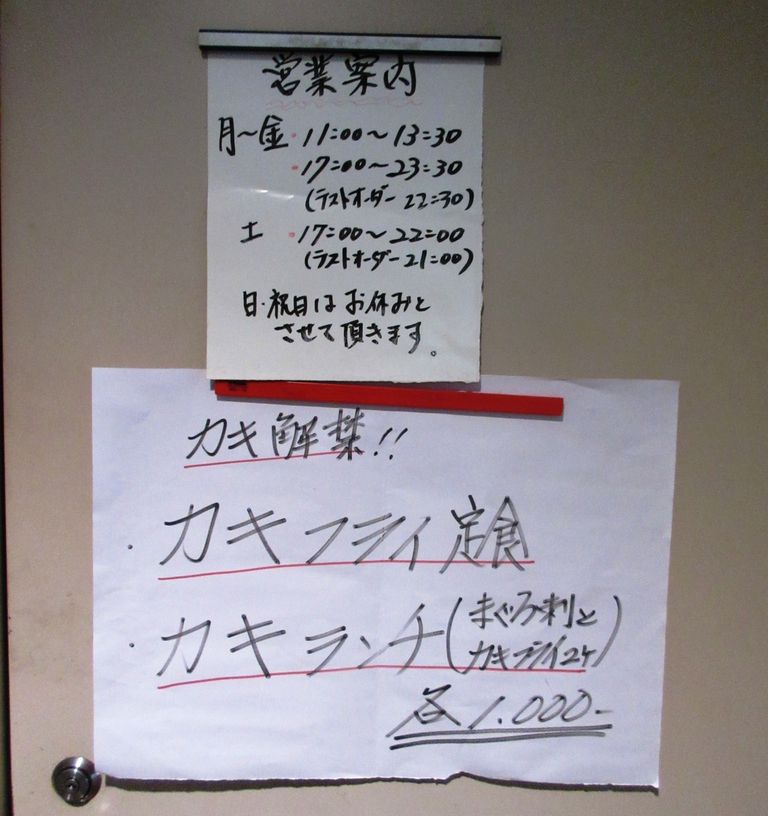 営業案内
月～金・11:00～13:30
・17:00～23:30
(ラストオーダー 22:30)
土 ・17:00～22:00
(ラストオーダー 21:00)
日・祝日はお休みと
させて頂きます。
カキ解禁!!
・カキフライ定食
・カキランチ(まぐろ刺と
カキフライ2ケ)
各1.000-